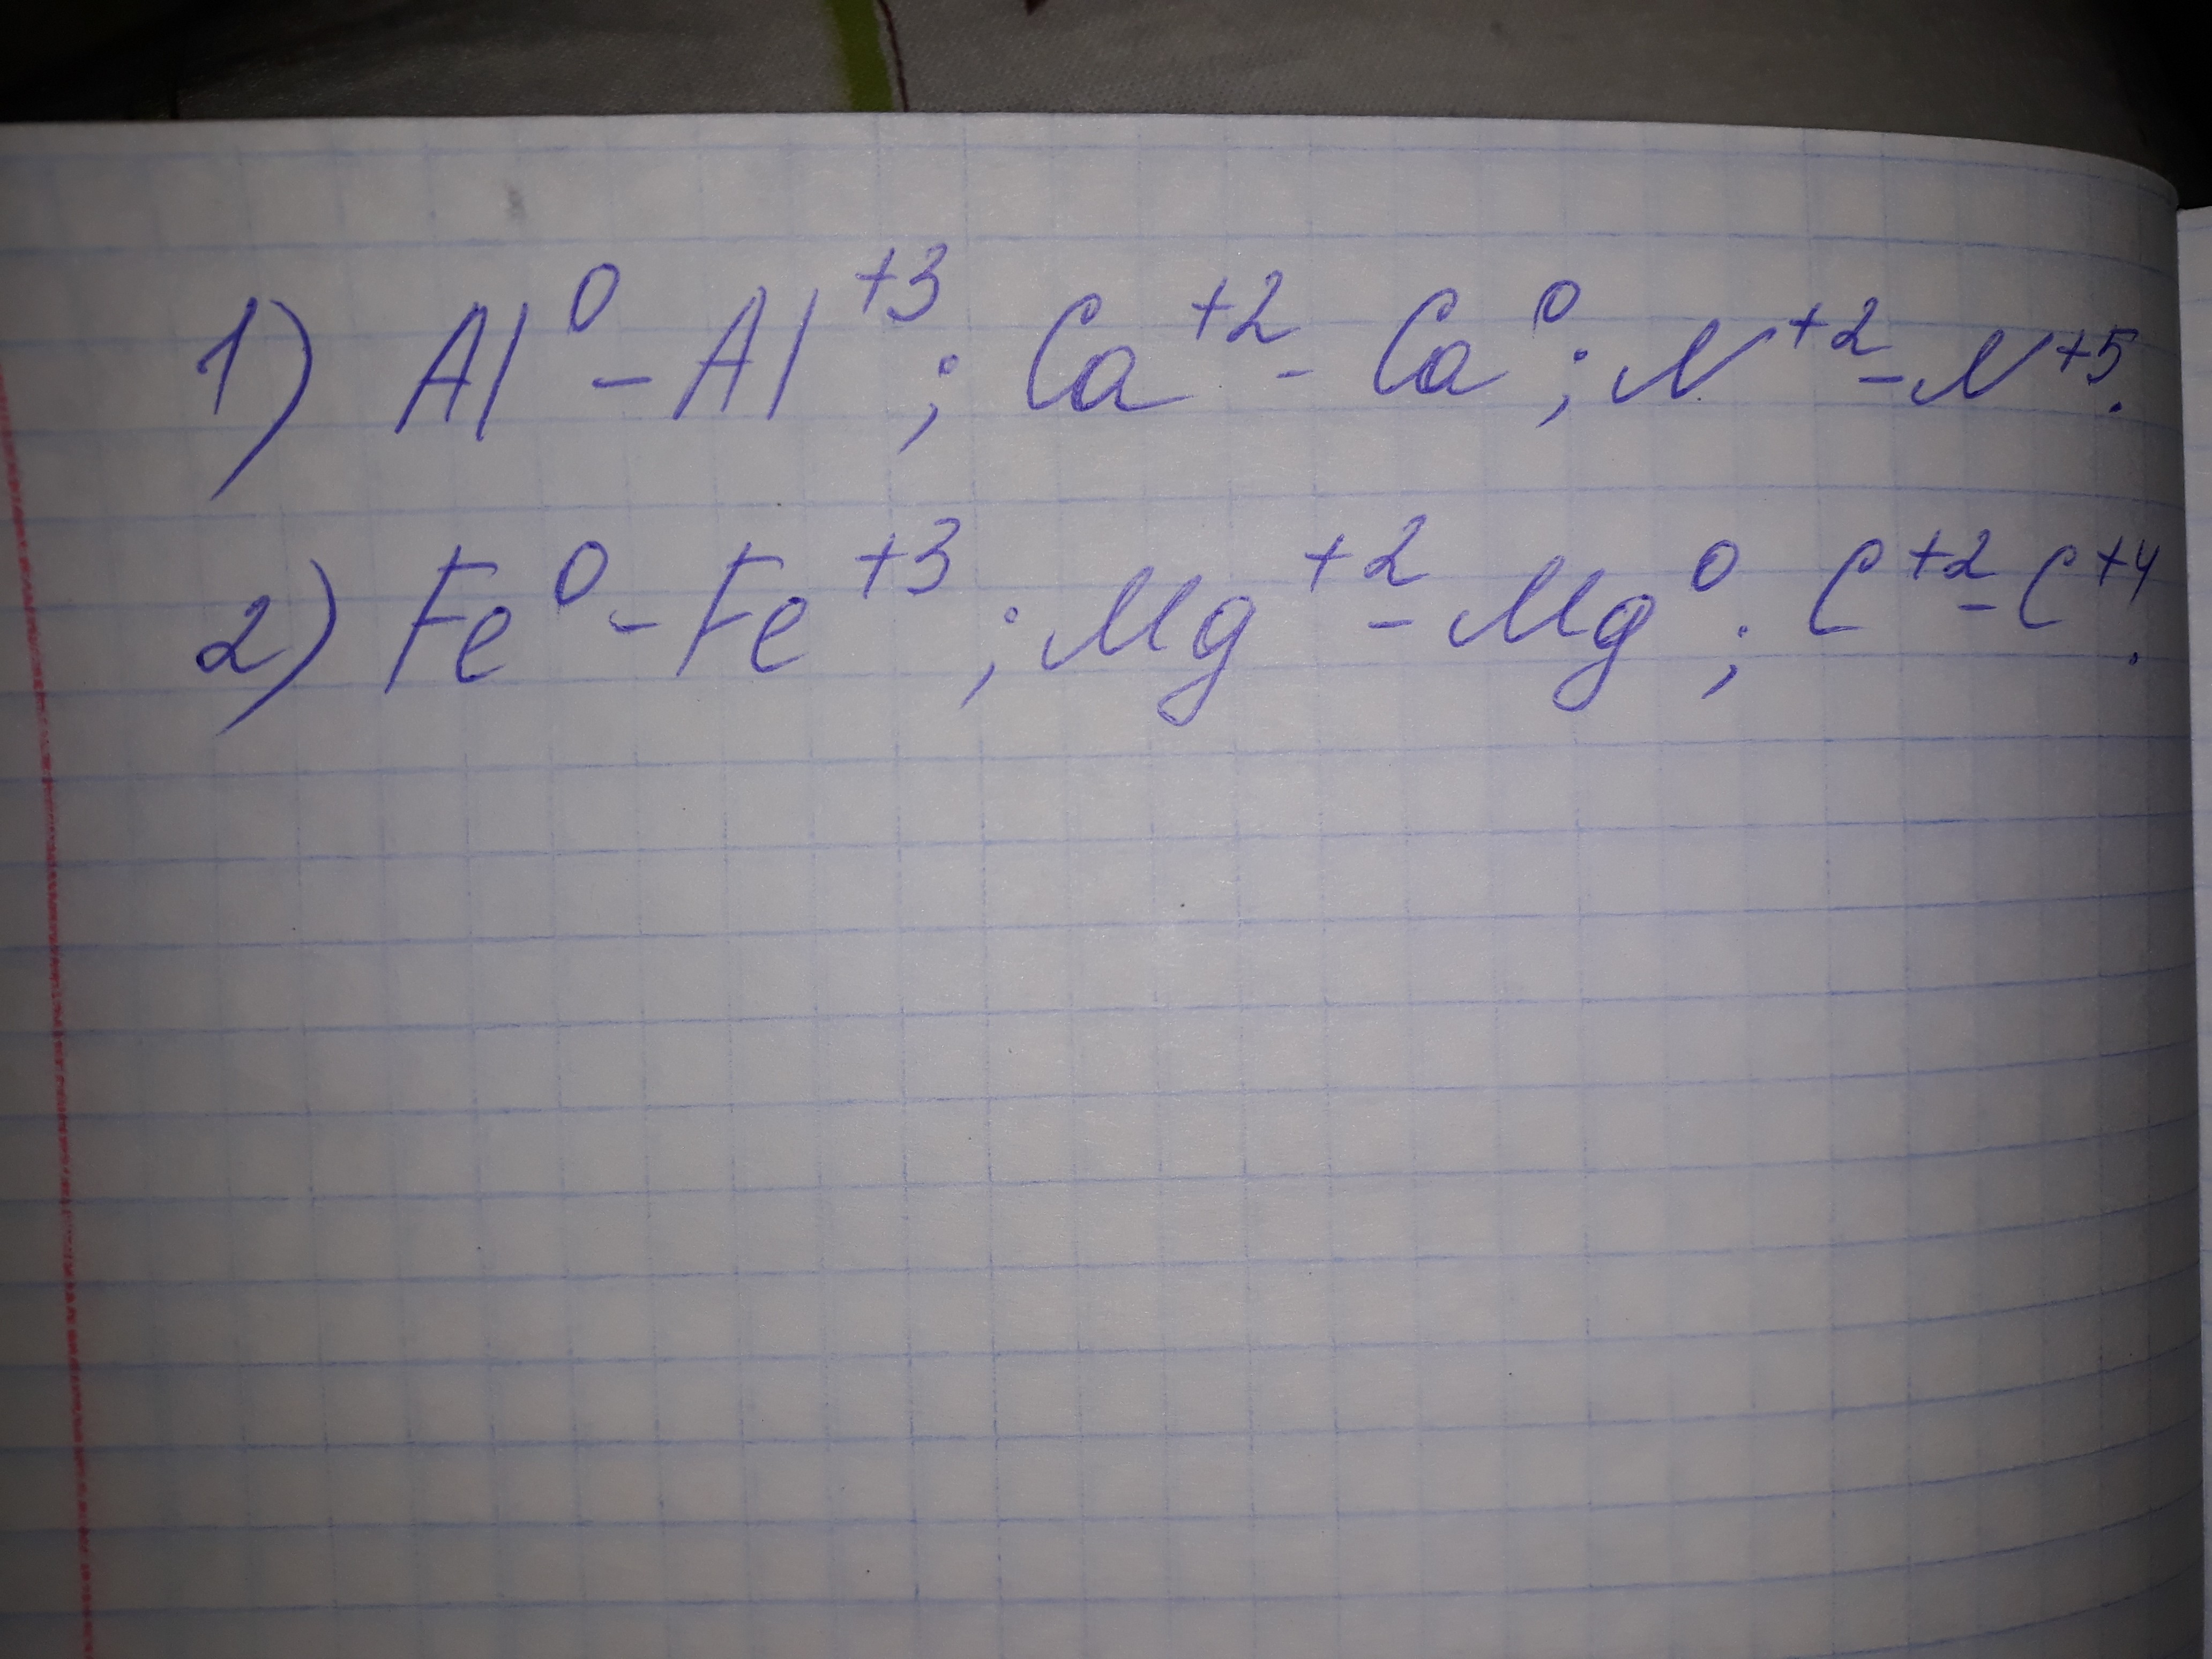 1) Al⁰ – Al⁺³; Ca⁺² – Ca⁰; N⁺² – N⁺⁵.
2) Fe⁰ – Fe⁺³; Mg⁺² – Mg⁰; C⁺² – C⁺⁴.